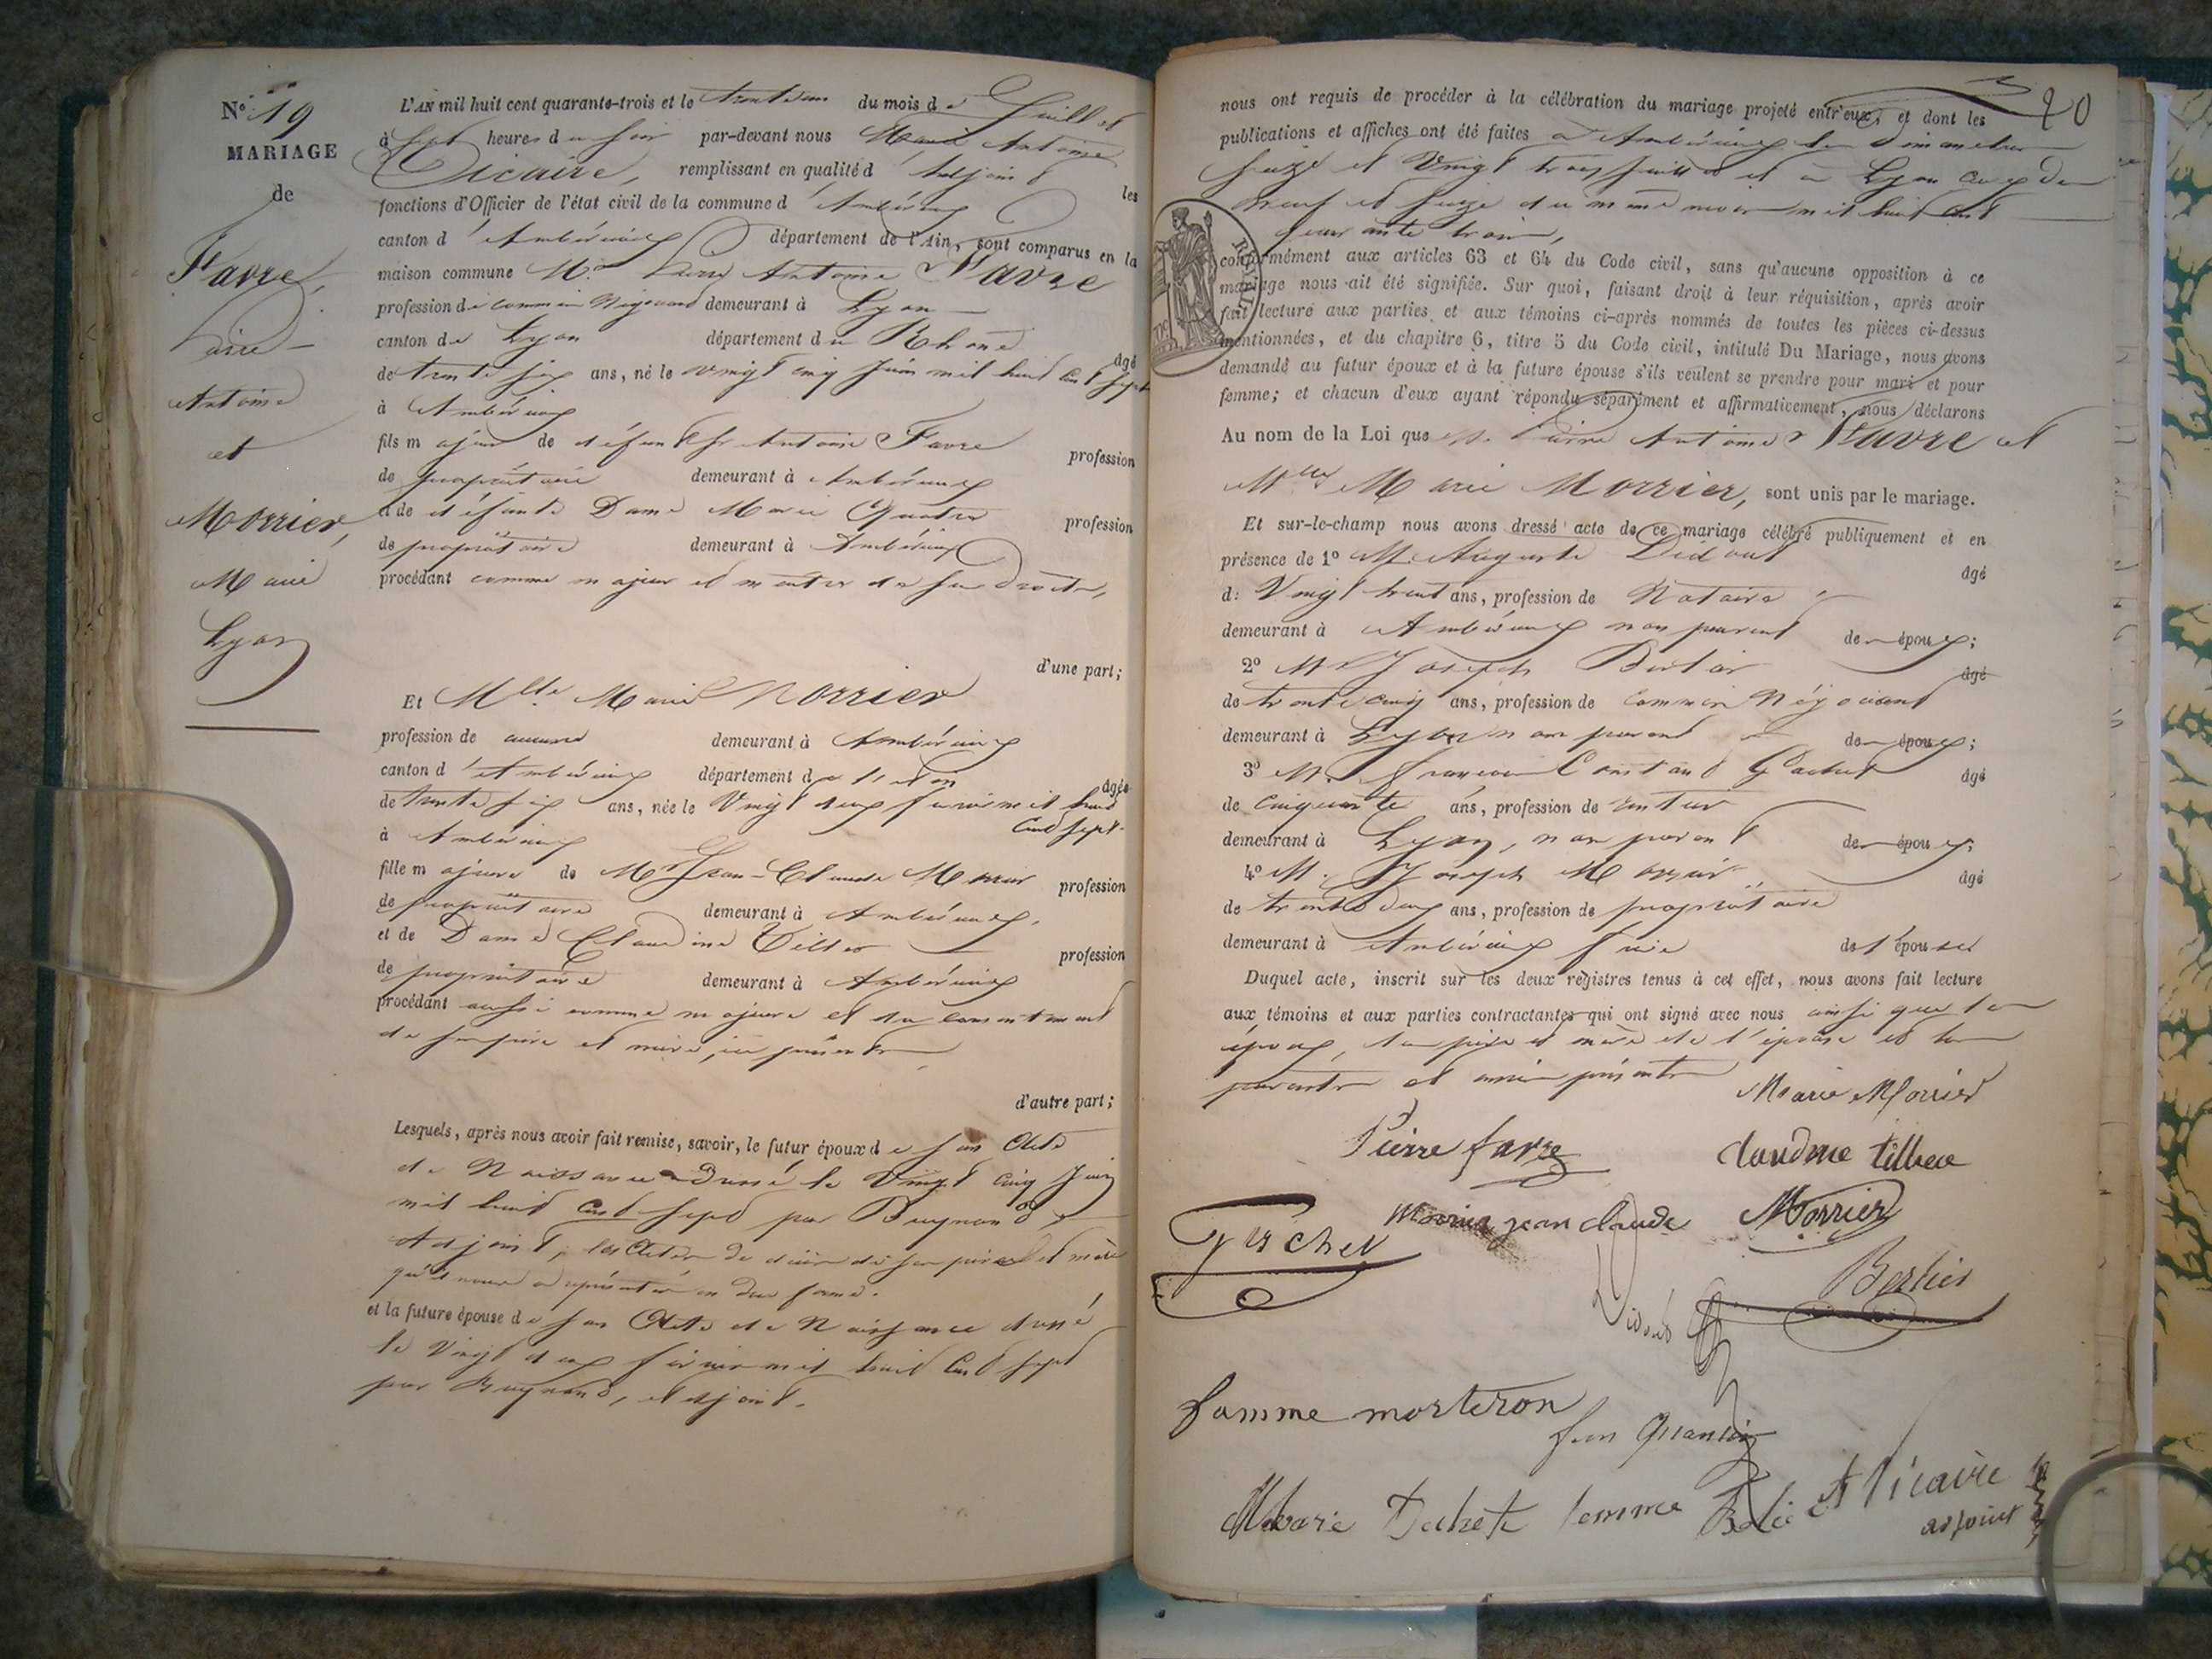 N.° 19
MARIAGE
de
Favre,
Pierre
Antoine
et
Morrier,
Marie
Lyon
L'AN mil huit cent quarante-trois et le du mois de Juillet
à sept heures du soir par-devant nous Marie Antoine
Dicaire, remplissant en qualité d'Adjoint les
fonctions d'Officier de l'état civil de la commune d'Ambérieux
canton d'Ambérieux département de l'Ain, sont comparus en la
maison commune Mr. Pierre Antoine Favre
profession de commis Négociant demeurant à Lyon
canton de Lyon département du Rhône âgé
de trente six ans, né le vingt cinq Juin mil huit cent sept
à Ambérieux
fils majeur de défunt Sr Antoine Favre profession
de propriétaire demeurant à Ambérieux
et de défunte Dame Marie profession
de propriétaire demeurant à Ambérieux
procédant comme majeur et maître de ses droits,
d'une part;
Et Mlle. Marie Morrier
profession de aucune demeurant à Ambérieux
canton d'Ambérieux département de l'Ain âgée
de trente six ans, née le Vingt deux février mil huit
cent sept
à Ambérieux
fille majeure de Mr Jean-Claude Morrier profession
de propriétaire demeurant à Ambérieux,
et de Dame Claudine profession
de propriétaire demeurant à Ambérieux
procédant aussi comme majeure et du consentement
de ses père et mère, ici présents
d'autre part;
Lesquels, après nous avoir fait remise, savoir, le futur époux de son Acte
de Naissance Dressé le Vingt cinq Juin
mil huit cent sept par
Adjoint, les Actes de décès de ses père et mère
qu'il nous a représentés en due forme.
et la future épouse de son Acte de Naissance dressé
le Vingt deux février mil huit cent sept
par adjoint.
20
nous ont requis de procéder à la célébration du mariage projeté entr'eux, et dont les
publications et affiches ont été faites à Ambérieux les Dimanches
seize et Vingt trois Juillet et à Lyon
neuf et seize du même mois mil huit cent
quarante trois,
conformément aux articles 63 et 64 du Code civil, sans qu'aucune opposition à ce
mariage nous ait été signifiée. Sur quoi, faisant droit à leur réquisition, après avoir
fait lecture aux parties et aux témoins ci-après nommés de toutes les pièces ci-dessus
mentionnées, et du chapitre 6, titre 5 du Code civil, intitulé Du Mariage, nous avons
demandé au futur époux et à la future épouse s'ils veulent se prendre pour mari et pour
femme; et chacun d'eux ayant répondu séparément et affirmativement, nous déclarons
Au nom de la Loi que M. Pierre Antoine Favre et
Mlle Marie Morrier, sont unis par le mariage.
Et sur-le-champ nous avons dressé acte de ce mariage célébré publiquement et en
présence de 1° M. Auguste Didout âgé
d: Vingt huit ans, profession de Notaire
demeurant à Ambérieux non parent des époux;
2° Mr Joseph Berlier âgé
de trente cinq ans, profession de commis Négociant
demeurant à Lyon non parent des époux;
3° M. François Constant Gachet âgé
de cinquante ans, profession de rentier
demeurant à Lyon, non parent des époux;
4° M. Joseph Morrier âgé
de trente deux ans, profession de propriétaire
demeurant à Ambérieux frère de l'épouse
Duquel acte, inscrit sur les deux registres tenus à cet effet, nous avons fait lecture
aux témoins et aux parties contractantes qui ont signé avec nous ainsi que les
époux, les père et mère de l'épouse et les
parents et amis présents
Marie Morrier
Pierre favre
Claudine
Morrier jean claude
Morrier
Gachet
Berlier
famme morteron
Marie femme
Dicaire
adjoint